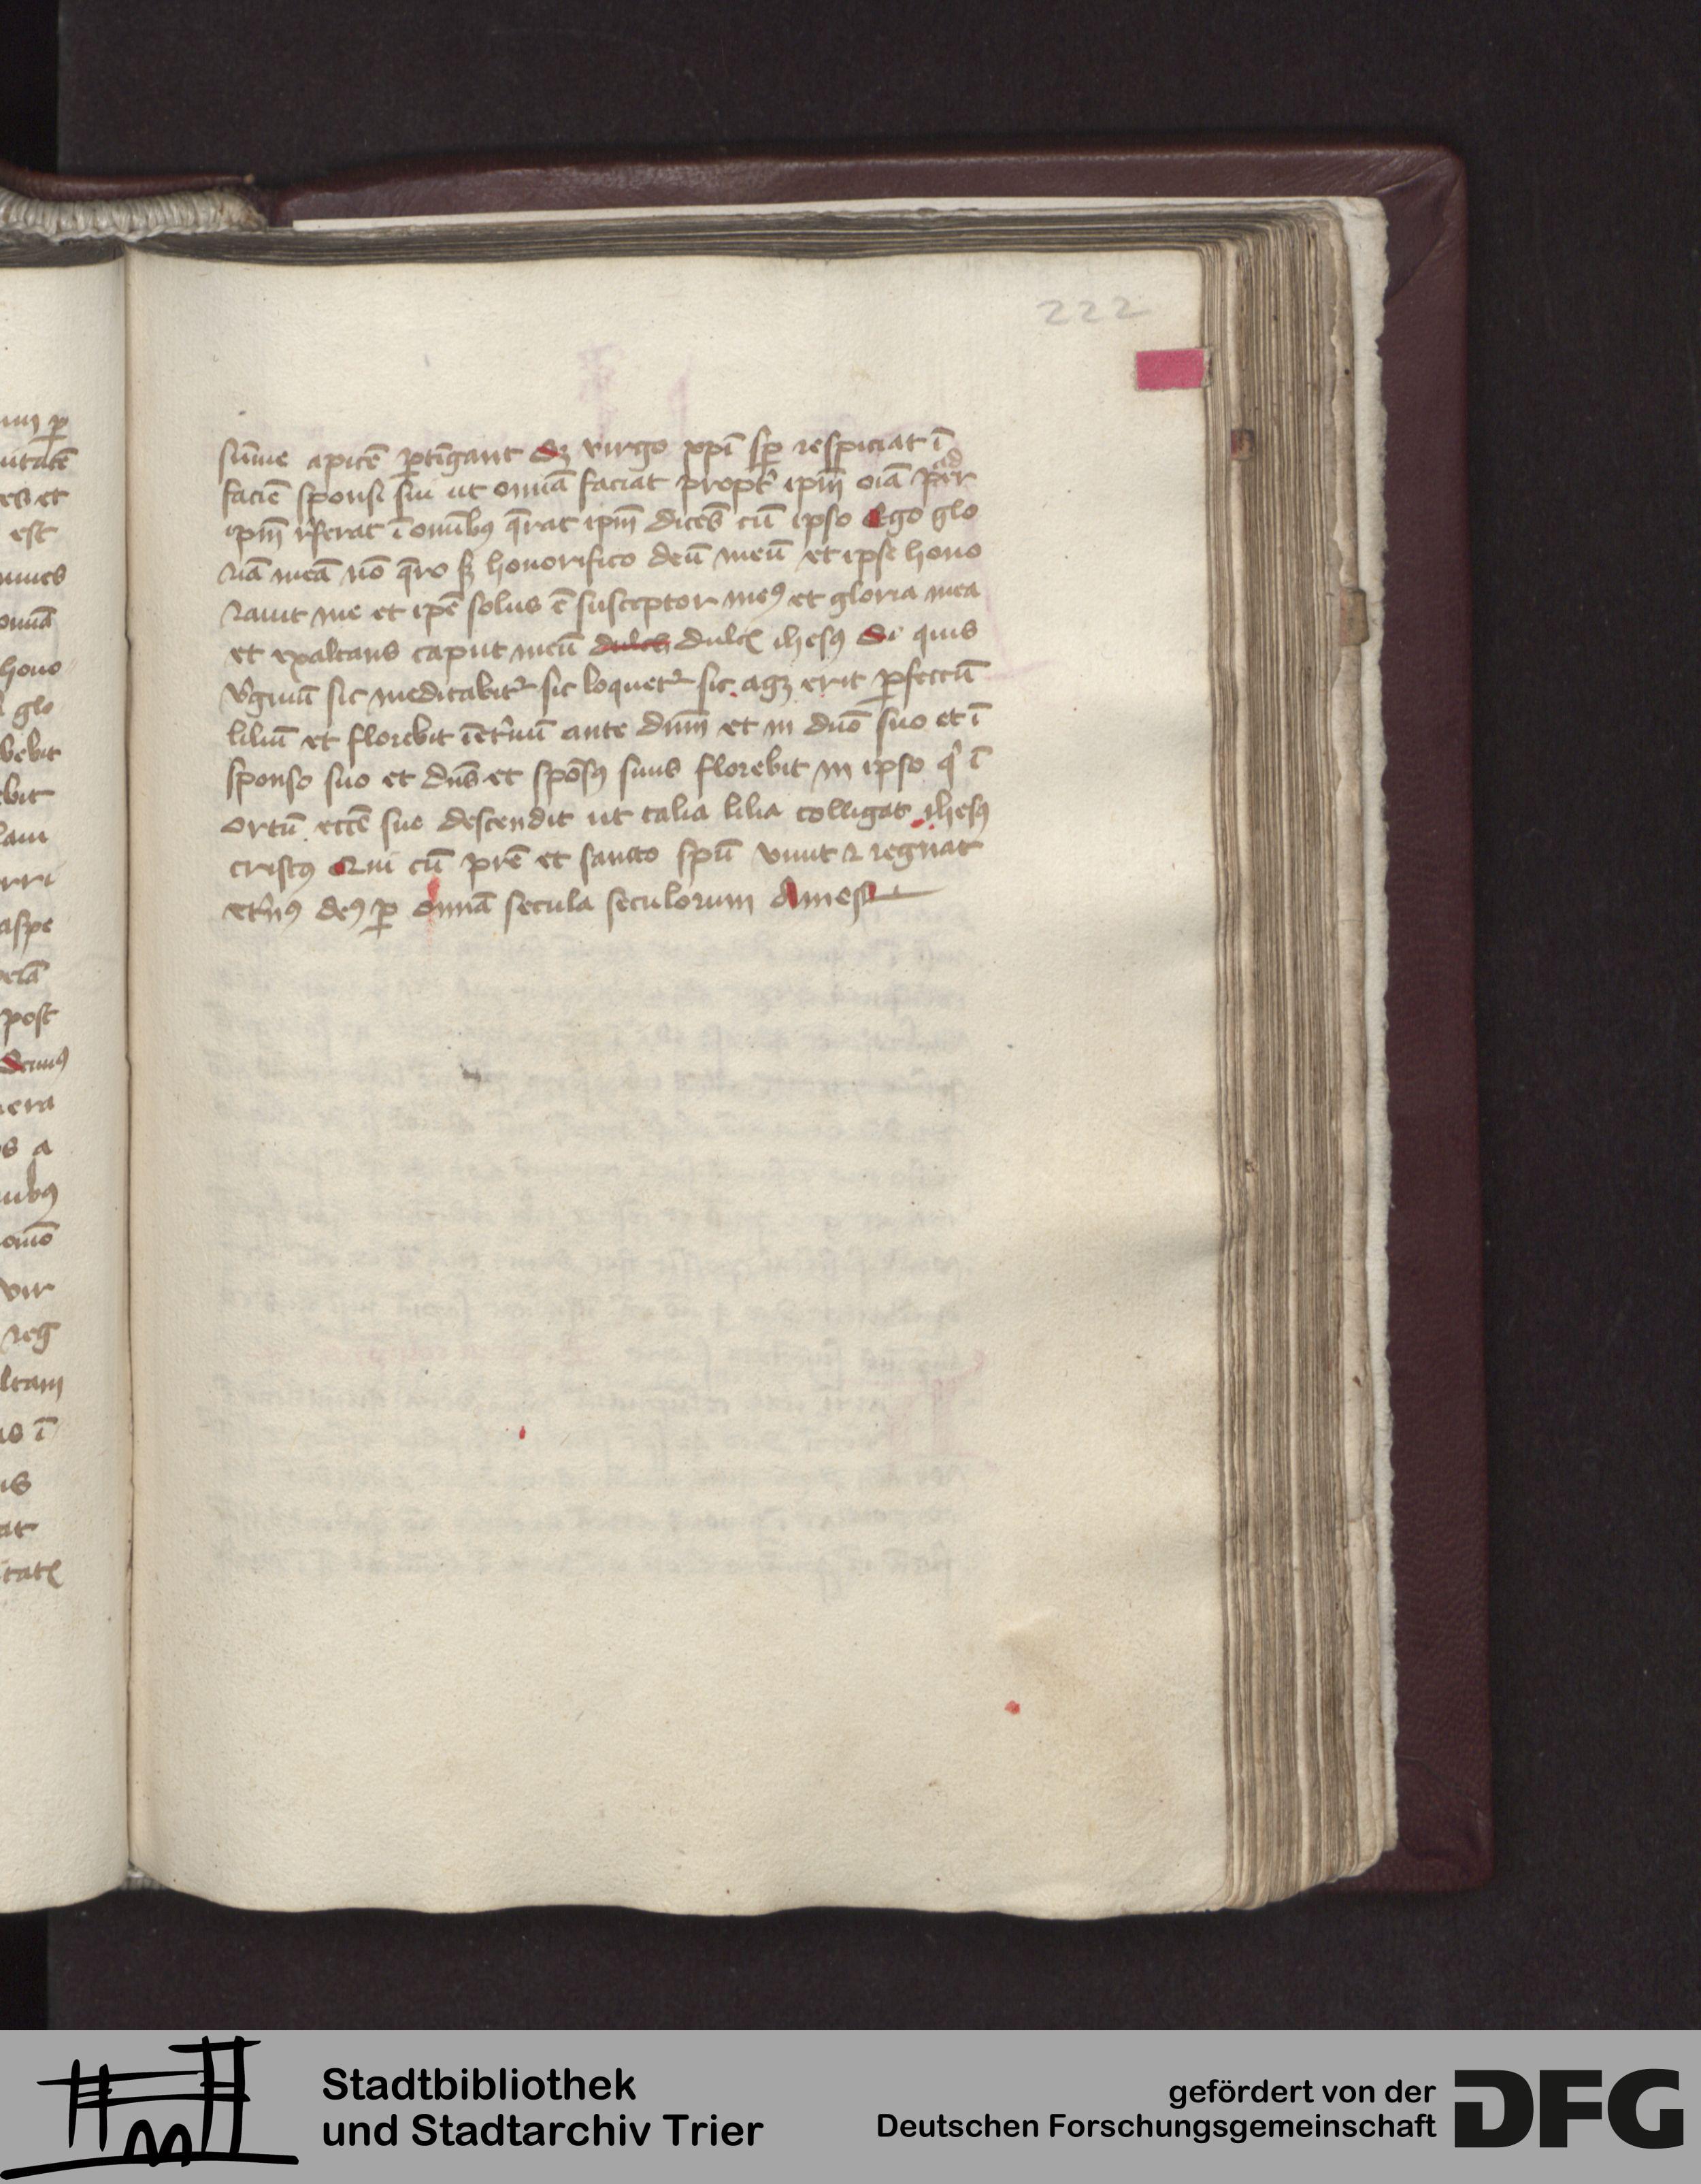 222
sūme apicē ꝑtīgant Sꝫ virgo xpī sꝑ respiciat ī
faciē sponsi sui ut omīa faciat propt̉ ipm̄ oīa
ad
ipm̄ r̉ferat ī omībꝰ q̄rat ipm̄ dicēs cū ipso Ego glo
riā meā nō q̄ro sꝫ honorifico deū meū et ipse hono
rauit me et ipē solus ē susceptor meꝰ et gloria mea
et exaltans caput meū dulcis dulcꝭ ihesꝰ Si quis
v̉ginū sic meditabit᷑ sic loquet᷑ sic agꝫ erit ꝑfectū
liliū et florebit īet̉nū ante dnm̄ et in dnō suo et ī
sponso suo et dn̄s et spōsꝰ suus florebit in ipso q̉ ī
ortū eccē sue descendit ut talia lilia colligat ihesꝰ
cristꝰ Qui cū pr̄e et sancto spū viuit ⁊ regnat
et̉nꝰ deꝰ ꝑ omīa secula seculorum Amen
est
hono
glo
post
s a
vir
reg
ltam
us ī
Stadtbibliothek
und Stadtarchiv Trier
gefördert von der
Deutschen Forschungsgemeinschaft
DFG